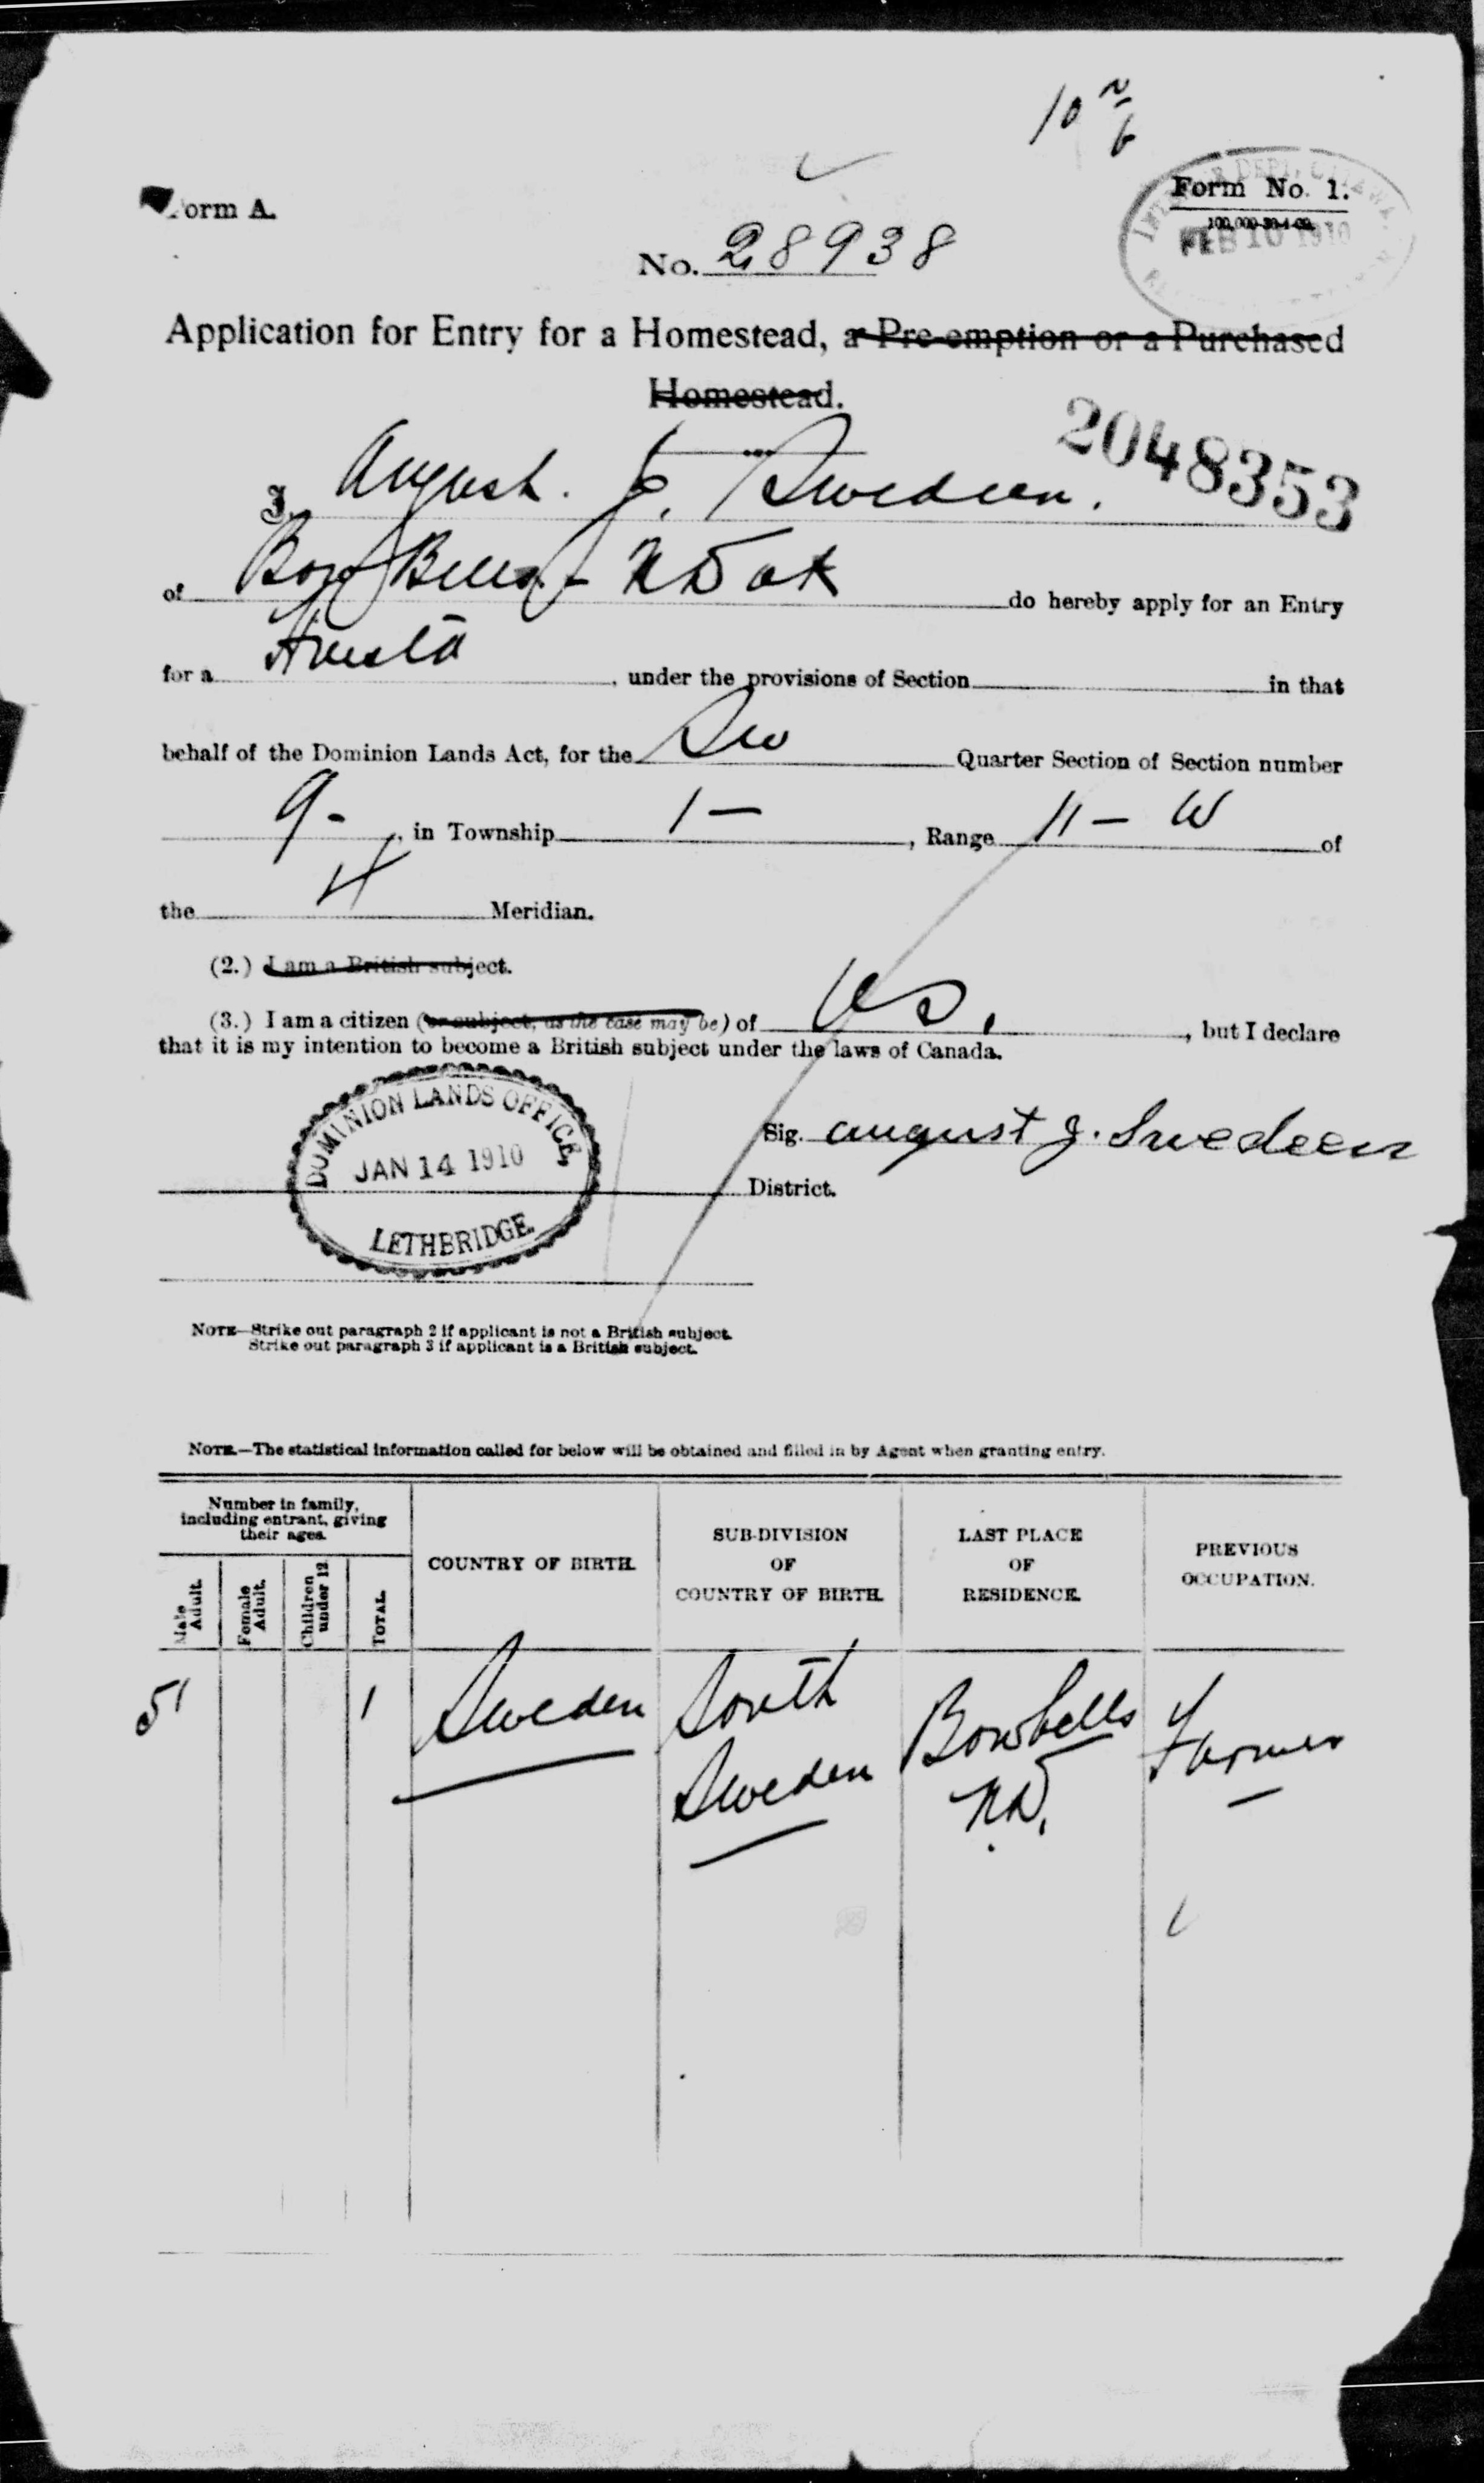 10
Form A.
Form No. 1.
100,000-30-4-09.
INTERIOR DEPT. OTTAWA
FEB 10 1910
No. 28938
Application for Entry for a Homestead, a Pre-emption or a Purchased
Homestead.
2048353
I, August. J. Swedeen.
of Bow Bells - N Dak do hereby apply for an Entry
for a Hmstd , under the provisions of Section in that
behalf of the Dominion Lands Act, for the Sw Quarter Section of Section number
9 - , in Township 1 - , Range 11 - W of
the 4 Meridian.
(2.) I am a British subject.
(3.) I am a citizen (or subject, as the case may be) of U S. , but I declare
that it is my intention to become a British subject under the laws of Canada.
DOMINION LANDS OFFICE,
JAN 14 1910
LETHBRIDGE.
Sig. august J. Swedeen
District.
NOTE—Strike out paragraph 2 if applicant is not a British subject.
Strike out paragraph 3 if applicant is a British subject.
NOTE.—The statistical information called for below will be obtained and filled in by Agent when granting entry.
Number in family, including entrant, giving their ages.
Male Adult.
Female Adult.
Children under 12
TOTAL.
COUNTRY OF BIRTH.
SUB-DIVISION OF COUNTRY OF BIRTH.
LAST PLACE OF RESIDENCE.
PREVIOUS OCCUPATION.
51 1 Sweden South Bowbells Farmer
Sweden N.D.